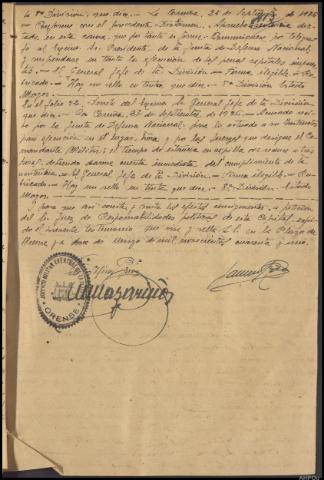 la 8ª División, que dice.- La Coruña, 25 de Septiembre de 1936
Conforme con el precedente dictamen, apruebo la sentencia dic-
tada en esta causa, que por tanto es firme. Comuníquese por telégra-
fo al Excmo. Sr. Presidente de la Junta de Defensa Nacional,
y suspéndase en tanto la ejecución de las penas capitales impues-
tas.- El General Jefe de la División.- Firma ilegible.- Ru-
bricado.- Hay un sello en tinta que dice.- 8ª División Estado
Mayor.
Al folio 72, decreto del Excmo. Sr. General Jefe de la División,
que dice.- La Coruña, 27 de Septiembre de 1936.
por la Junta de Defensa Nacional, pase lo actuado a su Instructor
para ejecución en el lugar, hora, y por las fuerzas que designe el Co-
mandante Militar; el tiempo de estancia en capilla se reduce a tres
horas, debiendo darme cuenta inmediata del cumplimiento de la
sentencia.- El General Jefe de la División.- Firma ilegible.- Ru-
bricado.- Hay un sello en tinta que dice.- 8ª División- Estado
Mayor.
Y para que así conste, y surta los efectos consiguientes, a petición
del Sr. Juez de Responsabilidades políticas de esta Capital, expi-
do el presente testimonio que visa y sella S.S. en la Plaza de
Orense, y a doce de Marzo de mil novecientos cuarenta y uno.
Visto Bueno
ORENSE